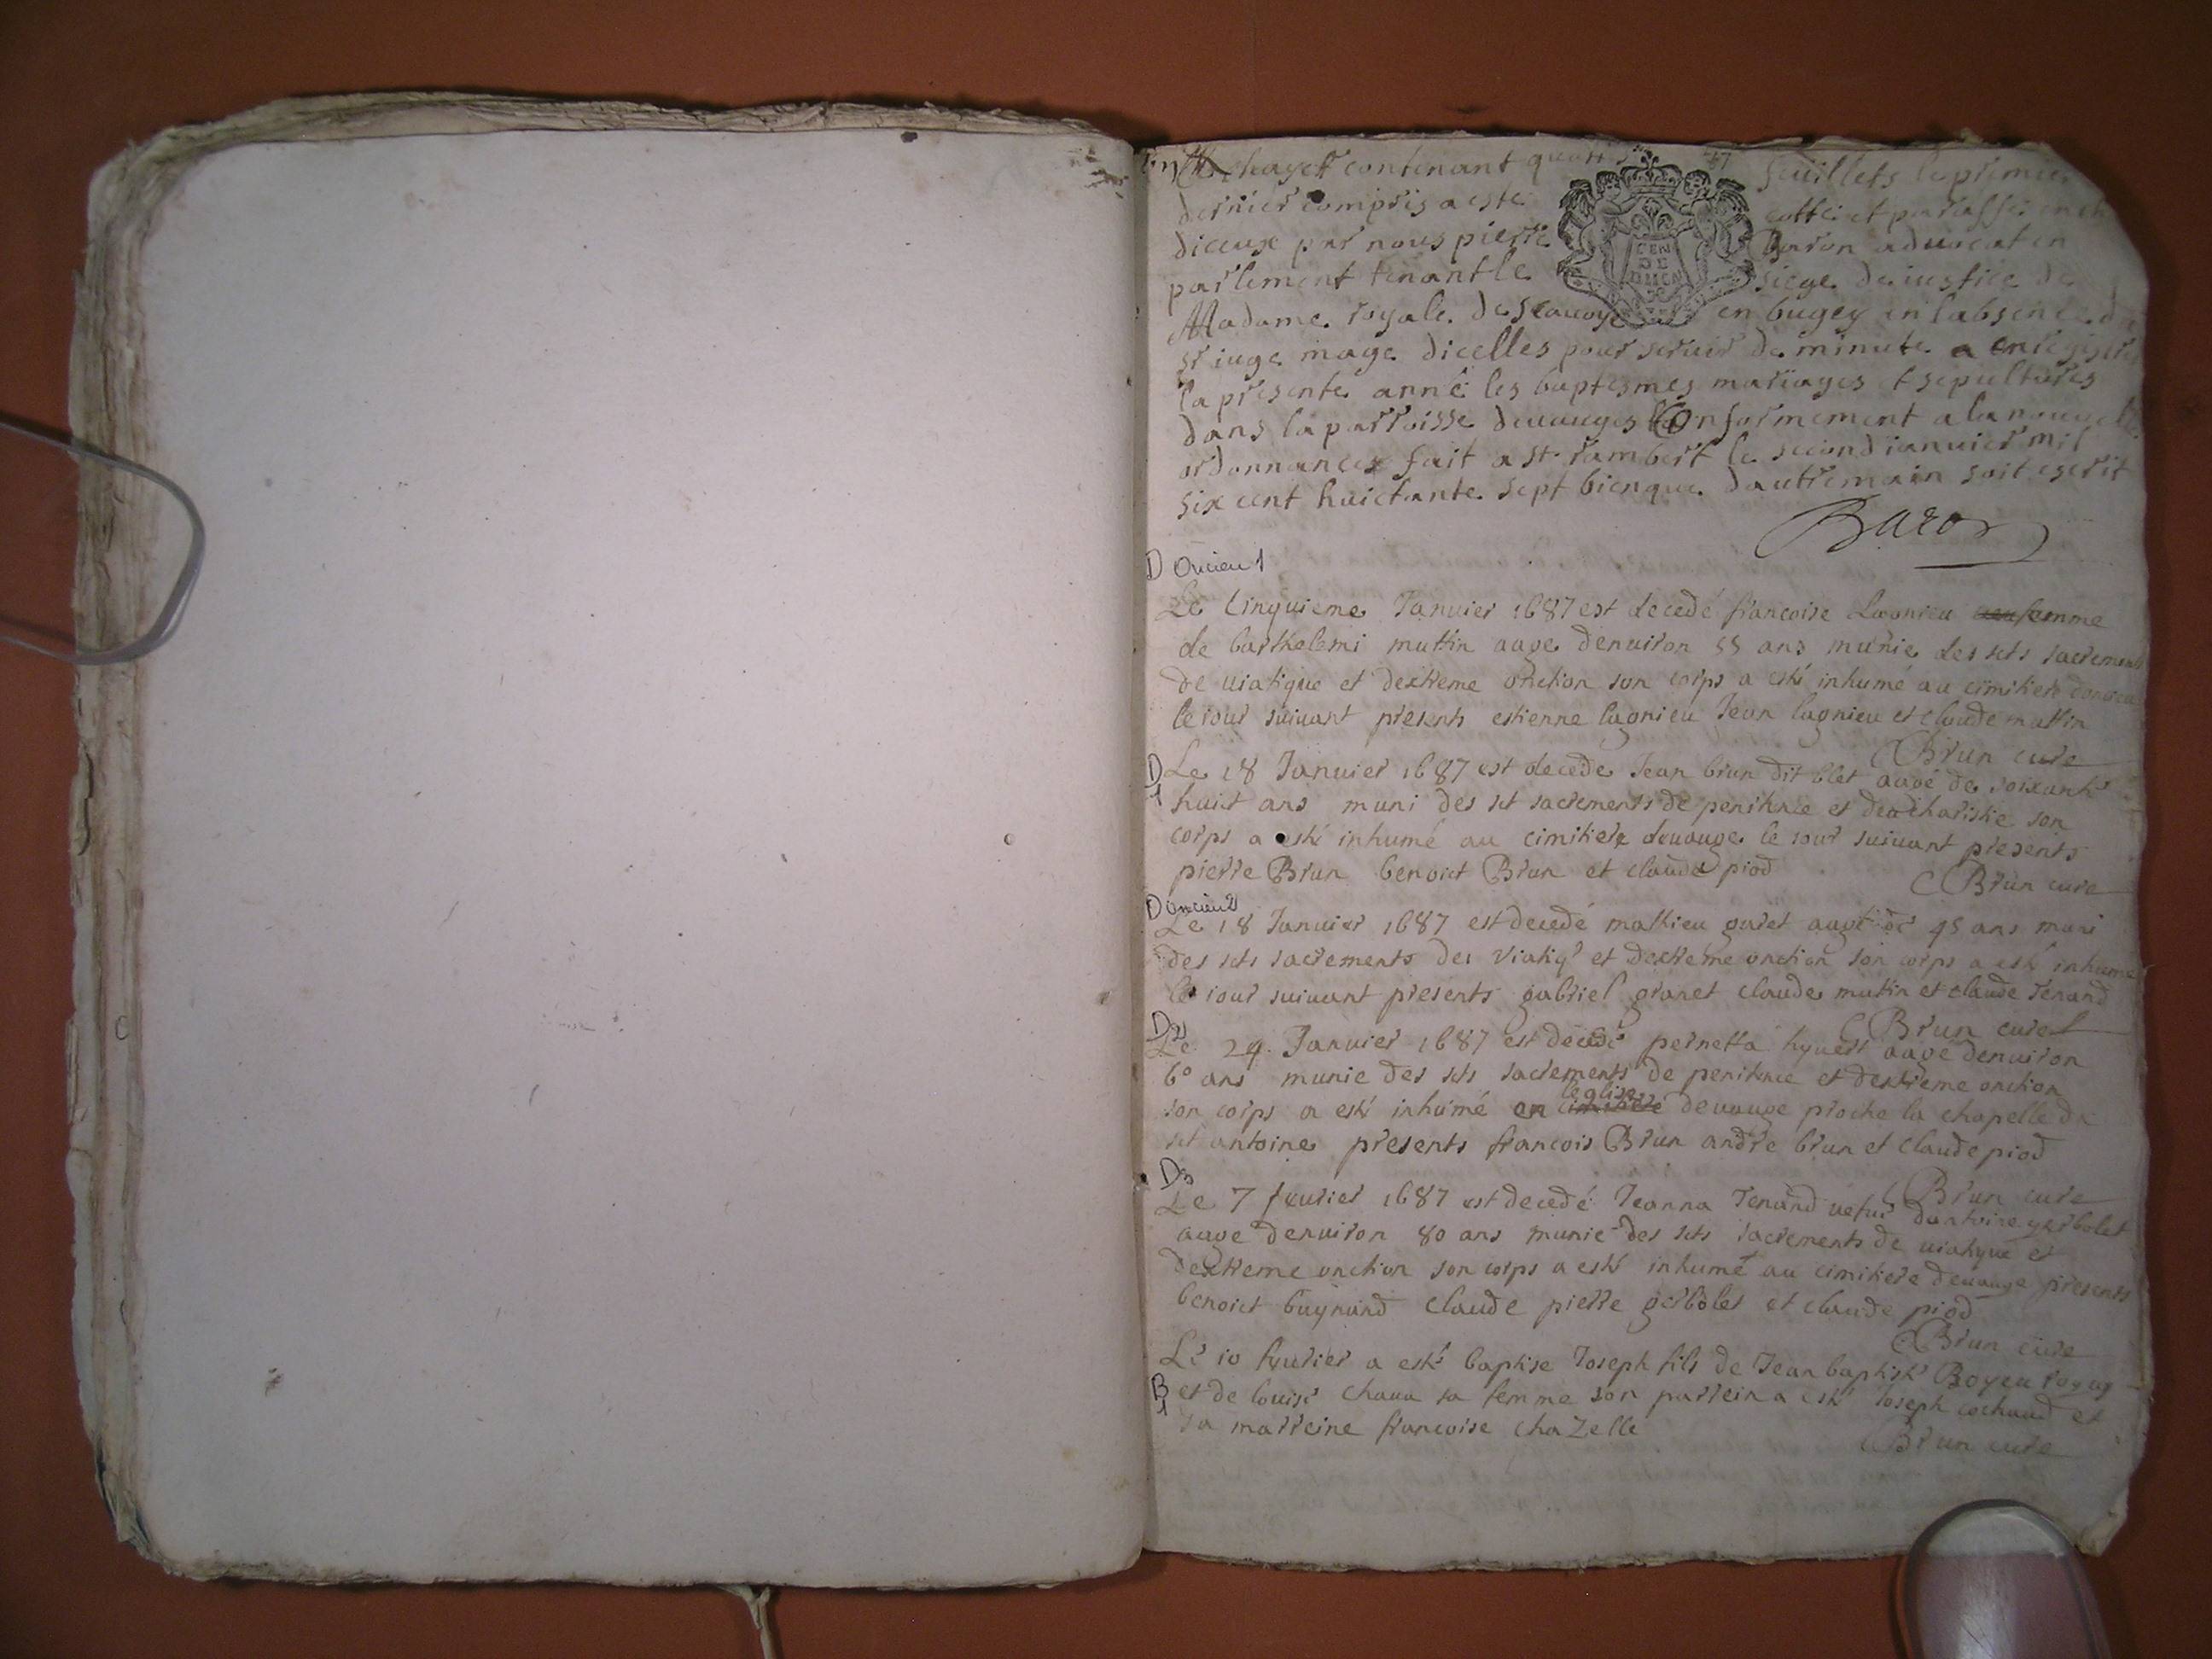 chayer contenant feuillets le premier
dernier compris a este cotté et paraffé
diceux par nous pierre Baron advocat en
parlement tenant le siege de iustice de
Madame royale de Seauoye en bugey en labsence d
sr iuge mage dicelles pour seruir de minute a enregistre
la presente anné les baptesmes mariages et sepultures
dans la parroisse deuauges Conformement a la nouvelle
ordonnances fait a st rambert le second ianuier mil
six cent huictante sept bien que dautre main soit escrit
Baron
D oncieu 1
Le Cinquieme Januier 1687 est decedé francoise Lagnieu femme
de barthelemi muttin aage denuiron 55 ans munie des sts sacrements
de uiatique et dextreme onction son corps a esté inhumé au cimitiere doncieu
le iour suiuant presents estienne lagnieu Jean lagnieu et claude muttin
C Brun cure
D Le 18 Januier 1687 est decede Jean brun dit blet aagé de soixante
1 huit ans muni des st sacrements de penitence et deucharistie son
corps a esté inhumé au cimitiere deuauge le iour suiuant presents
pierre Brun benoict Brun et claude piod
C Brun cure
D oncieu 2
Le 18 Januier 1687 est decedé mathieu garet aagé de 45 ans muni
des sts sacrements des viatiq et dextreme onction son corps a esté inhume
le iour suiuant presents gabriel granet claude mutin et claude Tenand
C Brun cure
D 2
Le 24 Januier 1687 est decedé pernetta hyuert aage denuiron
60 ans munie des sts sacrements de penitence et dextreme onction
son corps a esté inhumé en cimitiere leglise deuauge proche la chapelle de
st antoine presents francois Brun andre brun et claude piod
C Brun cure
D 3
Le 7 feurier 1687 est decedé Jeanna Tenand uefue dantoine gerbolet
aage denuiron 80 ans munie des sts sacrements de uiatique et
dextreme onction son corps a esté inhumé au cimitiere deuauge presents
benoict bugnand claude pierre gerbolet et claude piod
C Brun cure
Le 10 feurier a esté baptise Joseph fils de Jean baptiste Boyeu
B et de louise chaua sa femme son parrein a esté Joseph cochand et
1 sa marreine francoise chaZelle
C Brun cure